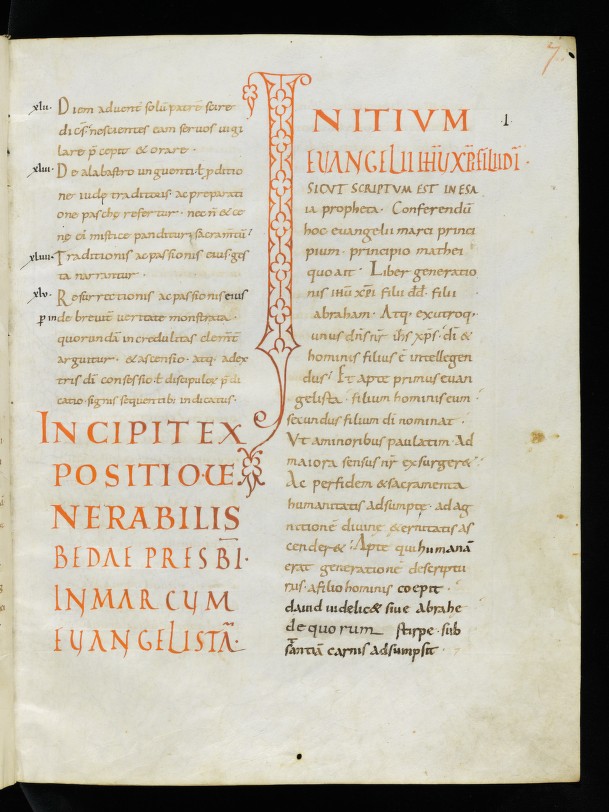 7.
xlii. Diem aduent̄ solū patrē scire
di cit̄ nescientes eam seruos uigi
lare p̄cepit & orare.
xliii. De alabastro unguenti & p̱ditio
ne iudę traditoris. ac preparati
one paschę refertur. necn̄ & ce
nę cū mistice panditur sacramtū;
xliiii. Traditionis ac passionis eius ges
ta narrantur.
xlv. Resurrectionis ac passionis eius
p̱ inde breuit̄ ueritate monstrata.
quorundā incredulitas clem̄t
arguitur. & ascensio. atq. adex
tris dī consessio. & discipulorū p̄di
catio signis sequentib; indicatus.
INCIPIT EX
POSITIO UE
NERABILIS
BEDAE PRESBĪ.
IN MARCUM
EUANGELISTĀ.
INITIUM I.
EUANGELII IHŪ XP̄I FILII DĪ.
SICUT SCRIPTUM EST IN ESA
ia propheta. Conferendū
hoc euangelii marci princi
pium. principio mathei
quo ait. Liber generatio
nis ihū xp̄i filii dd̄. filii
abraham. Atq. ex utroq.
unus dn̄s nr̄ ih̄s xp̄s. dī &
hominis filius ē intellegen
dus; Et apte primus euan
gelista. filium hominis eum.
secundus filium dī nominat.
Ut a minoribus paulatim. Ad
maiora sensus nr̄ exsurger&.
Ac per fidem & sacramenta
humanitatis adsumptę. ad ag
nitionē diuinę & ernitatis as
cender&; Apte qui humanā
erat generationē descriptu
rus. a filio hominis coepit.
dauid uidelic& siue abrahę
de quorum stirpe. sub
stantiā carnis adsumpsit.